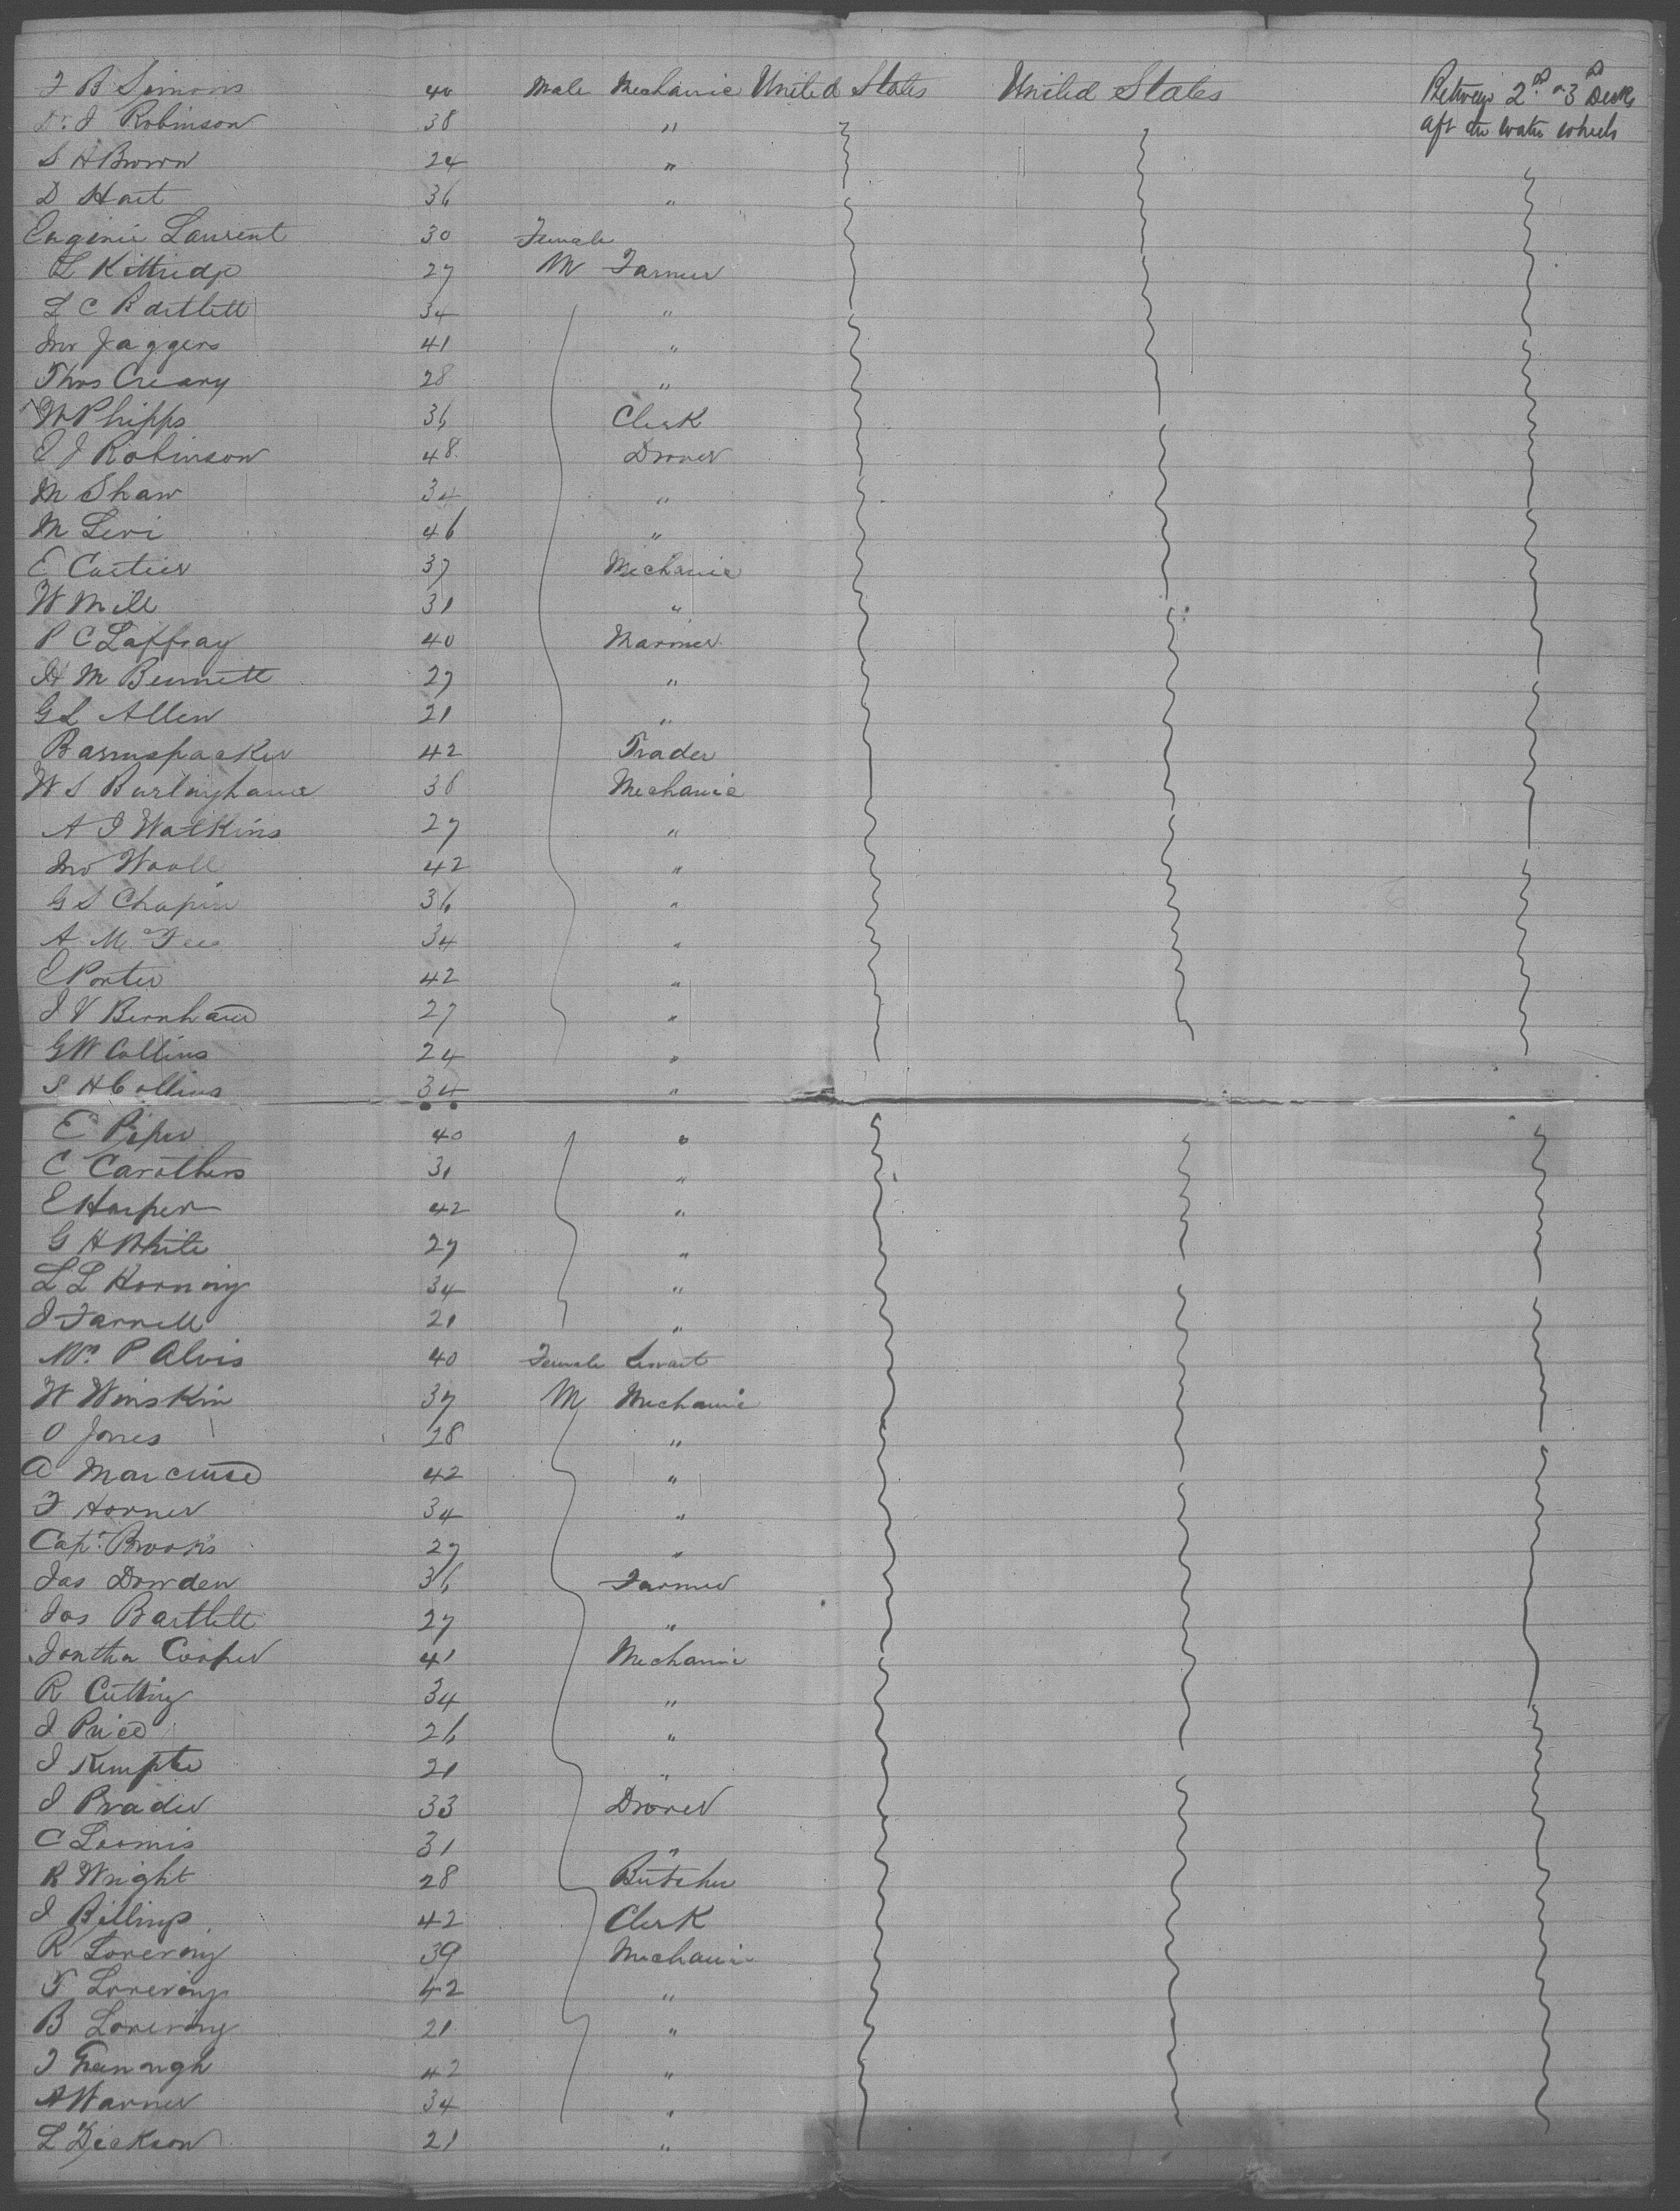 F B Simons 40 Male Mechanic United States United States Between 2d & 3d Decks
Dr. J Robinson 38 " aft the water wheels
S H Brown 24 "
D Hart 36 "
Eugenie Laurent 30 Female
L Kittridge 27 M Farmer
L C Bartlett 34 "
Jno Jaggers 41 "
Thos Creary 28 "
W Phipps 36 Clerk
E J Robinson 48 Drover
M Shaw 34 "
M Levi 46 "
E Cartier 37 Mechanic
W Mill 31 "
P C Laffray 40 Mariner
H M Bennett 27 "
G L Allen 21 "
Barnspacker 42 Trader
W S Burlinghame 38 Mechanic
A J Watkins 27 "
Jno Wooll 42 "
G S Chapin 36 "
A Mc Fee 34 "
E Porter 42 "
J V Bernhard 27 "
G W Collins 24 "
S H Collins 34 "
E Piper 40 "
C Carothers 31 "
E Harper 42 "
G H White 27 "
L L Horning 34 "
J Farrell 21 "
Mrs. P Alvis 40 Female Servant
W Winskin 37 M Mechanic
O Jones 28 "
A Marcuse 42 "
F Horner 34 "
Capt. Brooks 27 "
Jas Dowden 36 Farmer
Jos Bartlett 27 "
Jontha Cooper 41 Mechanic
R Cutting 34 "
J Price 26 "
J Kempte 21 "
J Prader 33 Drover
C Loomis 31 "
R Wright 28 Butcher
J Billings 42 Clerk
R Lorering 39 Mechanic
T Lorering 42 "
B Lorering 21 "
J 42 "
A Warner 34 "
L Dickson 21 "